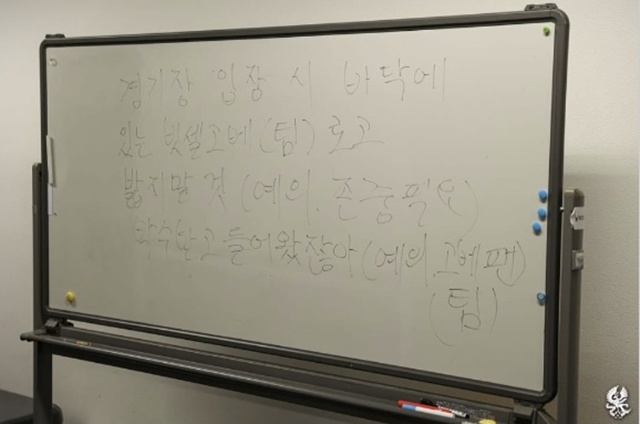 경기장 입장 시 바닥에
있는 빗셀고베(팀) 로고
밟지말 것 (예의, 존중필요)
박수받고 들어왔잖아(예의 고베팬)
(팀)